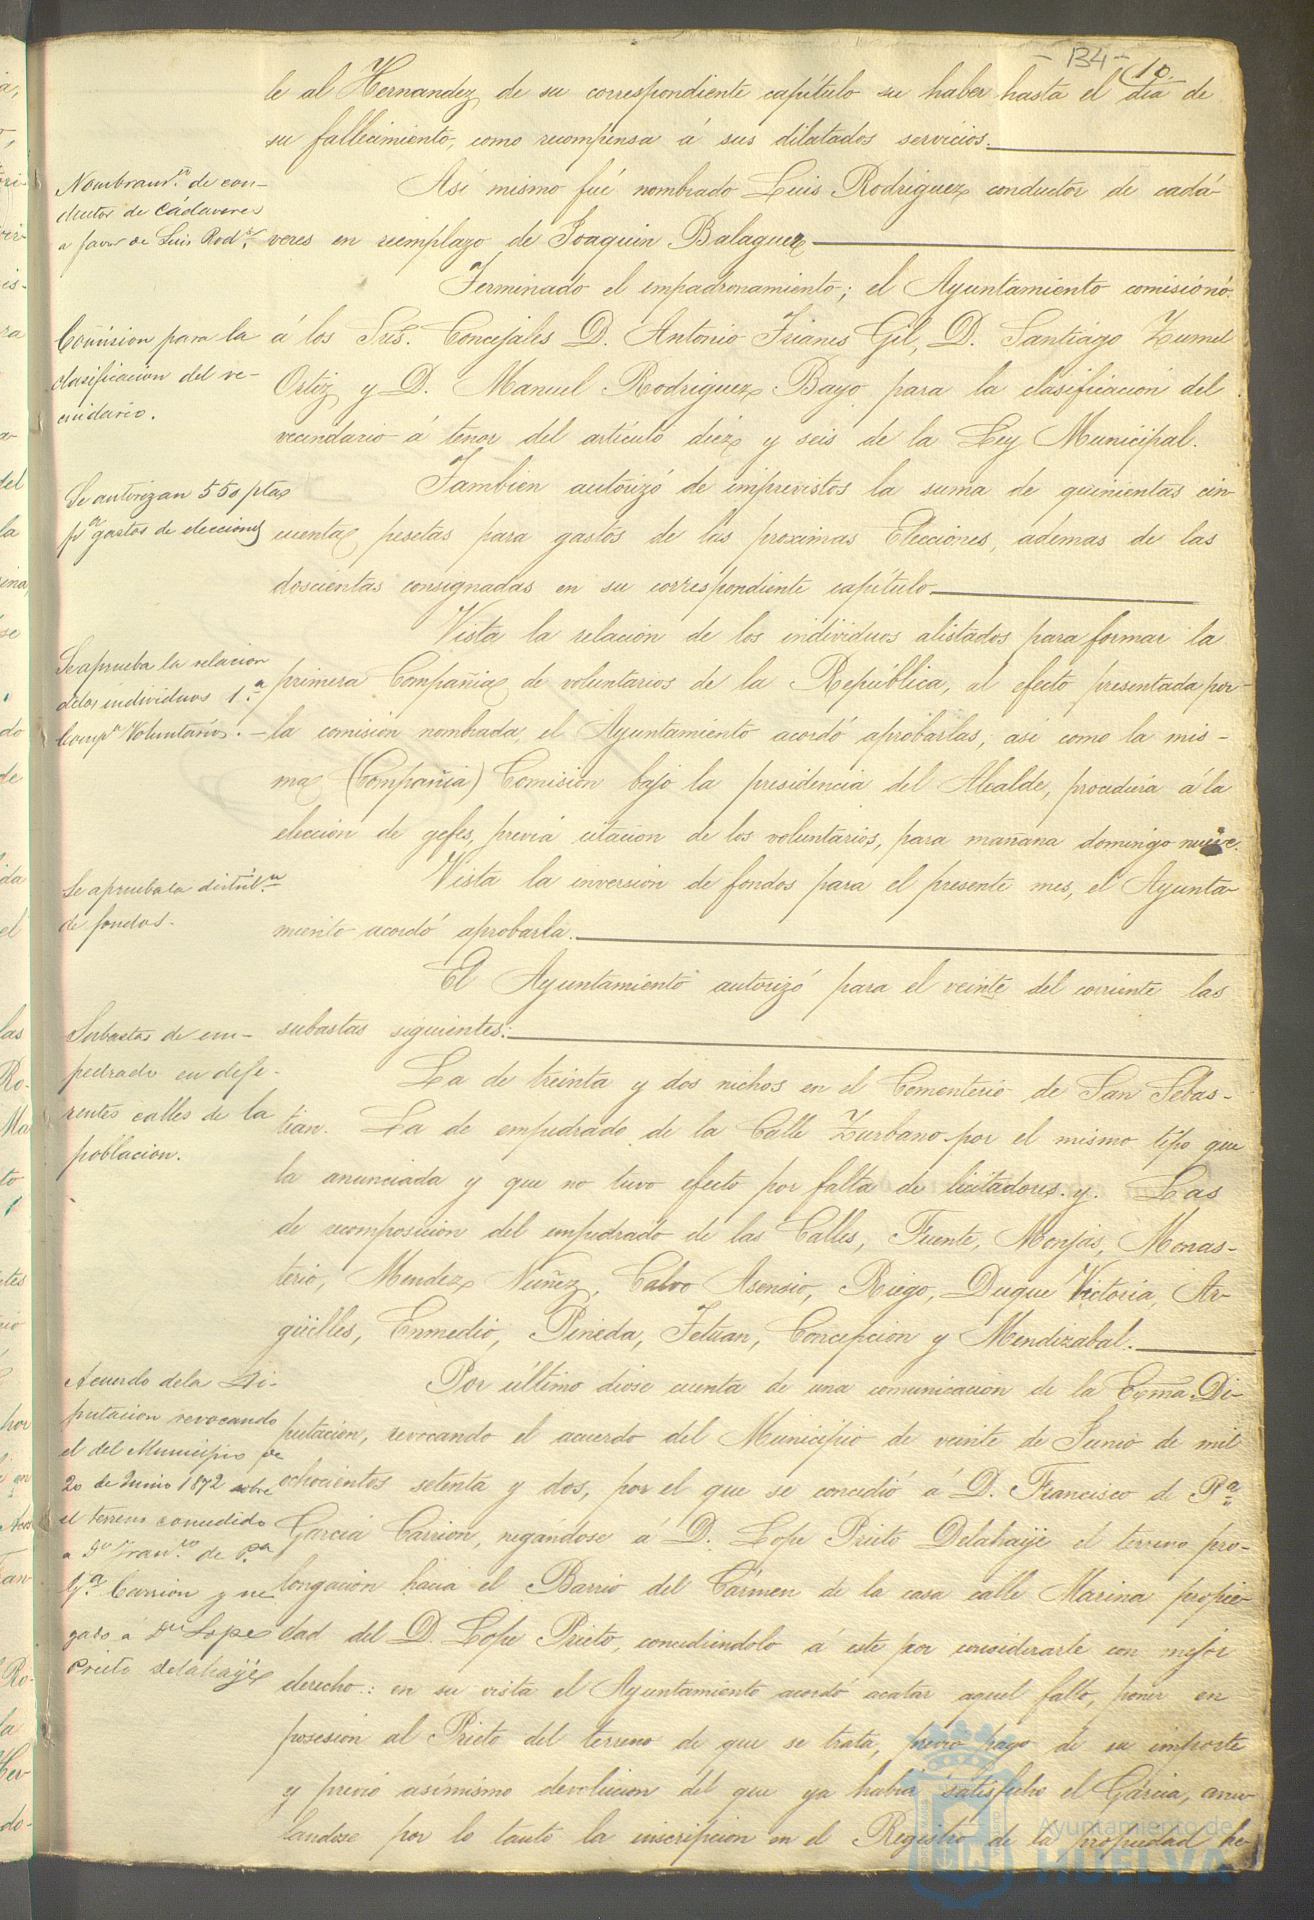 - 134 -
10
le al Hernandez de su correspondiente capítulo su haber hasta el día de
su fallecimiento, como recompensa á sus dilatados servicios.
Nombram.to de con-
ductor de cádaveres
a favor de Luis Rod.z
Así mismo fué nombrado Luis Rodriguez conductor de cadá-
veres en reemplazo de Joaquin Balaguer
Terminado el empadronamiento; el Ayuntamiento comisionó
Comision para la
clasificacion del ve-
cindario.
á los Sres. Concejales D. Antonio Trianes Gil, D. Santiago Zumel
Ortiz y D. Manuel Rodriguez Bayo para la clasificación del
vecindario á tenor del artículo diez y seis de la Ley Municipal.
Se autorizan 550 ptas
pa gastos de elecciones
Tambien autorizó de imprevistos la suma de quinientas cin-
cuenta pesetas para gastos de las proximas Elecciones, ademas de las
doscientas consignadas en su correspondiente capítulo
Se aprueba la relacion
de los individuos 1.a
Comp.a Voluntarios.
Vista la relacion de los individuos alistados para formar la
primera Compañia de voluntarios de la República, al efecto presentada por
la comisión nombrada, el Ayuntamiento acordó aprobarlas, asi como la mis-
ma (Compañia) Comisión bajo la presidencia del Alcalde, procederá á la
elección de gefes, previa citacion de los voluntarios, para mañana domingo nueve.
Se aprueba la distrib.n
de fondos.
Vista la inversion de fondos para el presente mes, el Ayunta-
miento acordó aprobarla.
El Ayuntamiento autorizó para el veinte del corriente las
subastas siguientes:
Subastas de em-
pedrado en dife-
rentes calles de la
poblacion.
La de treinta y dos nichos en el Cementerio de San Sebas-
tian. La de empedrado de la Calle Zurbano por el mismo tipo que
la anunciada y que no tuvo efecto por falta de licitadores. y. Las
de recomposicion del empedrado de las Calles, Fuente, Monjas, Monas-
terio, Mendez Nuñez, Calvo Asensio, Riego, Duque Victoria, Ar-
güelles, Enmedio, Pineda, Tetuan, Concepcion y Mendizabal.
Acuerdo de la Di-
putacion revocando
el del Municipio de
20 de Junio 1872 sobre
el terreno concedido
a Dn Fran.co de P.a
G.a Carrion y ne
gado a Dn Lope
Prieto Delahaije
Por último diose cuenta de una comunicacion de la Exma. Di-
putación, revocando el acuerdo del Municipio de veinte de Junio de mil
ochocientos setenta y dos, por el que se concedió á D. Francisco de P.a
García Carrion, negándose á D. Lope Prieto Delahaije el terreno pro-
longación hacia el Barrio del Cármen de la casa calle Marina propie-
dad del D. Lope Prieto, concediéndolo á este por considerarle con mejor
derecho.: en su vista el Ayuntamiento acordó acatar aquel fallo, poner en
posesión al Prieto del terreno de que se trata, previo pago de su importe
y previo asimismo devolucion del que ya habia satisfecho el Garcia, anu-
landose por lo tanto la inscripcion en el Registro de la propiedad he-
Ayuntamiento de
HUELVA